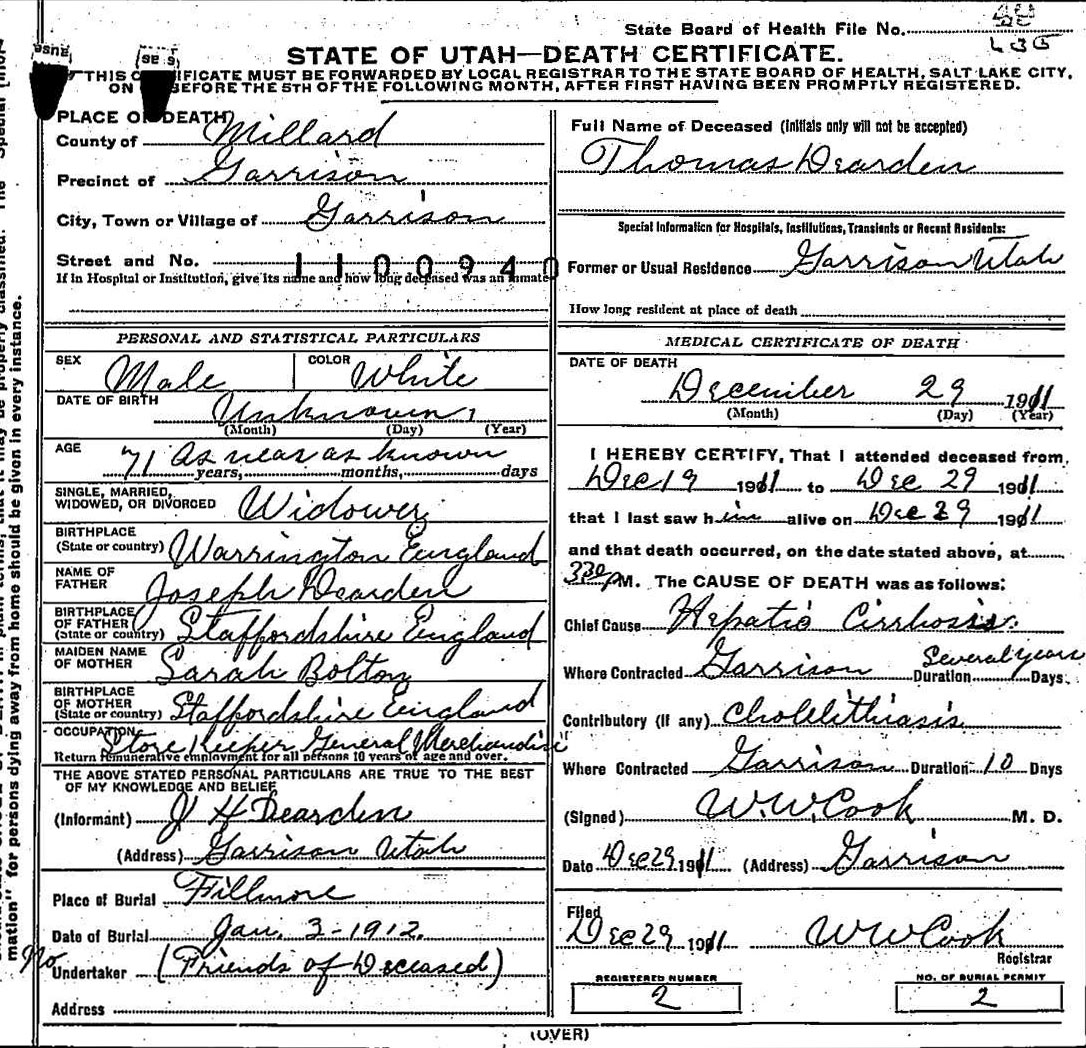 State Board of Health File No.
STATE OF UTAH—DEATH CERTIFICATE.
THIS CERTIFICATE MUST BE FORWARDED BY LOCAL REGISTRAR TO THE STATE BOARD OF HEALTH, SALT LAKE CITY,
ON BEFORE THE 5TH OF THE FOLLOWING MONTH, AFTER FIRST HAVING BEEN PROMPTLY REGISTERED.
PLACE OF DEATH
County of Millard
Precinct of Garrison
City, Town or Village of Garrison
Street and No. 1100940
If in Hospital or Institution, give its name and how long deceased was an inmate
PERSONAL AND STATISTICAL PARTICULARS
SEX Male COLOR White
DATE OF BIRTH Unknown
(Month) (Day) (Year)
AGE 71 As near as known
years, months, days
SINGLE, MARRIED, WIDOWED, OR DIVORCED Widower
BIRTHPLACE (State or country) Warrington England
NAME OF FATHER Joseph Dearden
BIRTHPLACE OF FATHER (State or country) Staffordshire England
MAIDEN NAME OF MOTHER Sarah Bolton
BIRTHPLACE OF MOTHER (State or country) Staffordshire England
OCCUPATION Store Keeper General Merchandise
Return remunerative employment for all persons 10 years of age and over.
THE ABOVE STATED PERSONAL PARTICULARS ARE TRUE TO THE BEST
OF MY KNOWLEDGE AND BELIEF
(Informant) J H Dearden
(Address) Garrison Utah
Place of Burial Fillmore
Date of Burial Jan. 3-1912.
No Undertaker (Friends of Deceased)
Address
Full Name of Deceased (Initials only will not be accepted)
Thomas Dearden
Special Information for Hospitals, Institutions, Transients or Recent Residents:
Former or Usual Residence Garrison Utah
How long resident at place of death
MEDICAL CERTIFICATE OF DEATH
DATE OF DEATH
December 29 1911
(Month) (Day) (Year)
I HEREBY CERTIFY, That I attended deceased from
Dec 19 1911 to Dec 29 1911
that I last saw him alive on Dec 29 1911
and that death occurred, on the date stated above, at
330 P M. The CAUSE OF DEATH was as follows:
Chief Cause Hepatic Cirrhosis.
Where Contracted Garrison Duration Several years Days.
Contributory (if any) Cholelithiasis
Where Contracted Garrison Duration 10 Days
(Signed) W.W. Cook M. D.
Date Dec 29 1911 (Address) Garrison
Filed
Dec 29 1911 W W Cook
Registrar
REGISTERED NUMBER 2
NO. OF BURIAL PERMIT 2
(OVER)
mation" for persons dying away from home should be given in every instance.